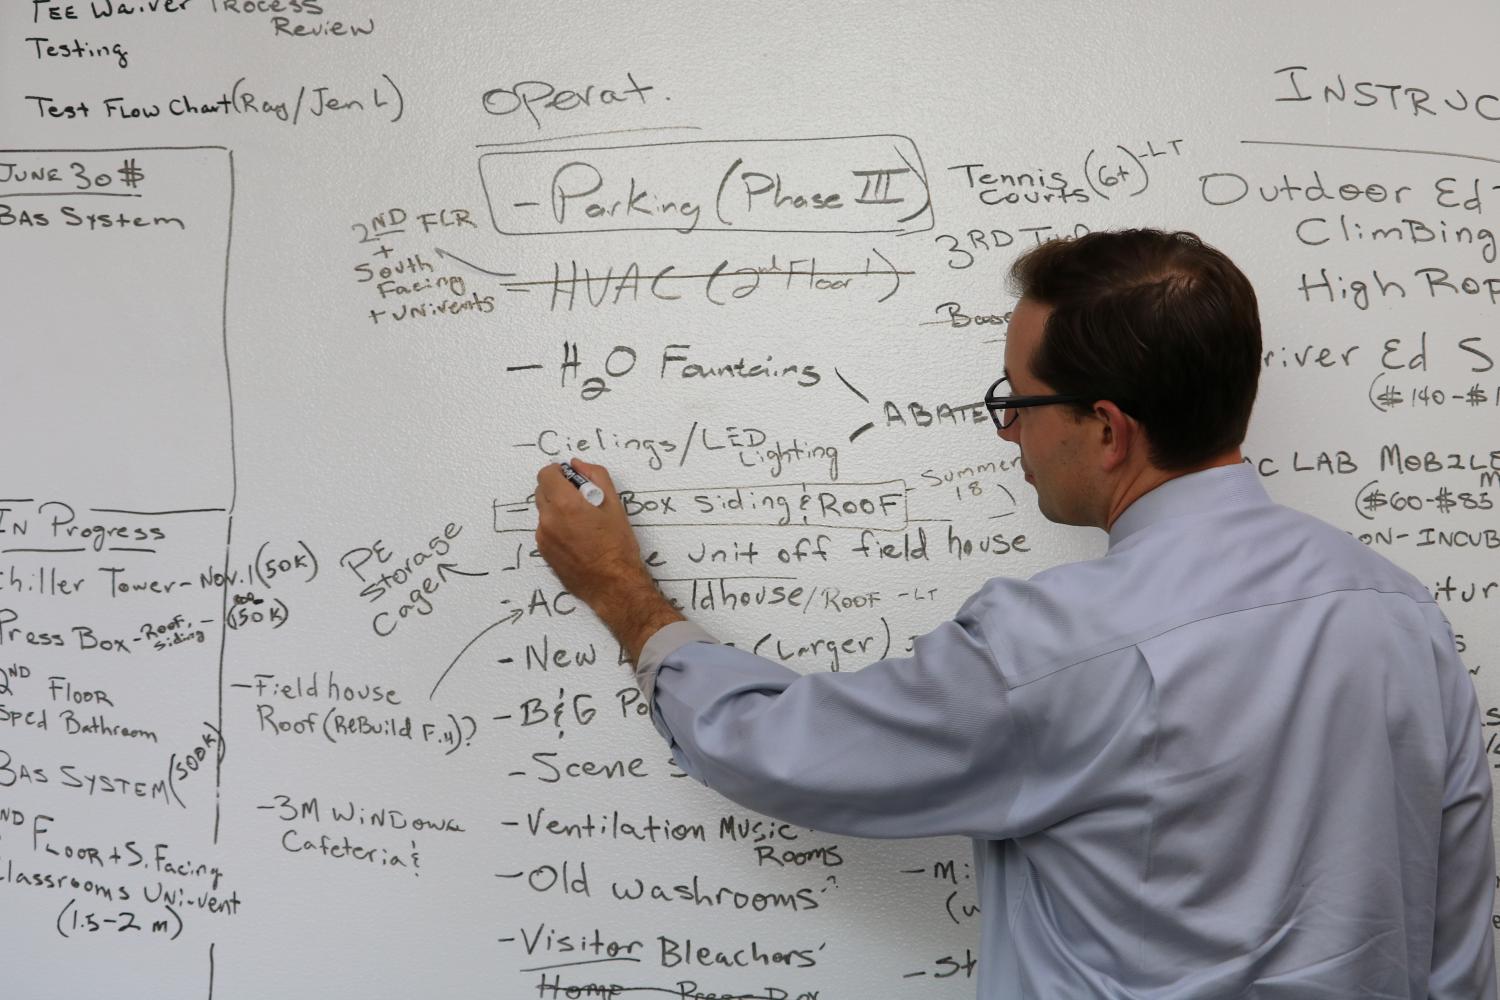 Fee Waiver Process
Review
Testing
Test Flow Chart (Ray/Jen L)
June 30 $
BAS System
In Progress
Chiller Tower - Nov. 1 (50K)
Press Box - Roof, -
Siding
(150K)
2ND Floor
Sped Bathroom
BAS System (500K)
Floor + S. Facing
Classrooms Uni-vent
(1.5-2 m)
2ND FLR
+
South
Facing
+ univents
PE
Storage
Cage
- Field house
Roof (ReBuild F.y)?
- 3M Windows
Cafeteria &
Operat.
- Parking (Phase III)
- HVAC (2nd Floor)
- H2O Fountains
- Cielings/LED
Lighting
ABATE
Box siding & Roof
Summer
18
unit off field house
- AC
eldhouse/Roof -LT
- New
(Larger)
- B&G Po
- Scene S
- Ventilation Music
Rooms
- Old washrooms?
- Visitor Bleachers
Home
Tennis (6+) -LT
Courts
3RD
Instruc
Outdoor Ed
Climbing
High Rop
river Ed S
($140-$1
C Lab Mobile
M
($60-$85
on-Incub
itur
- Mi
- St